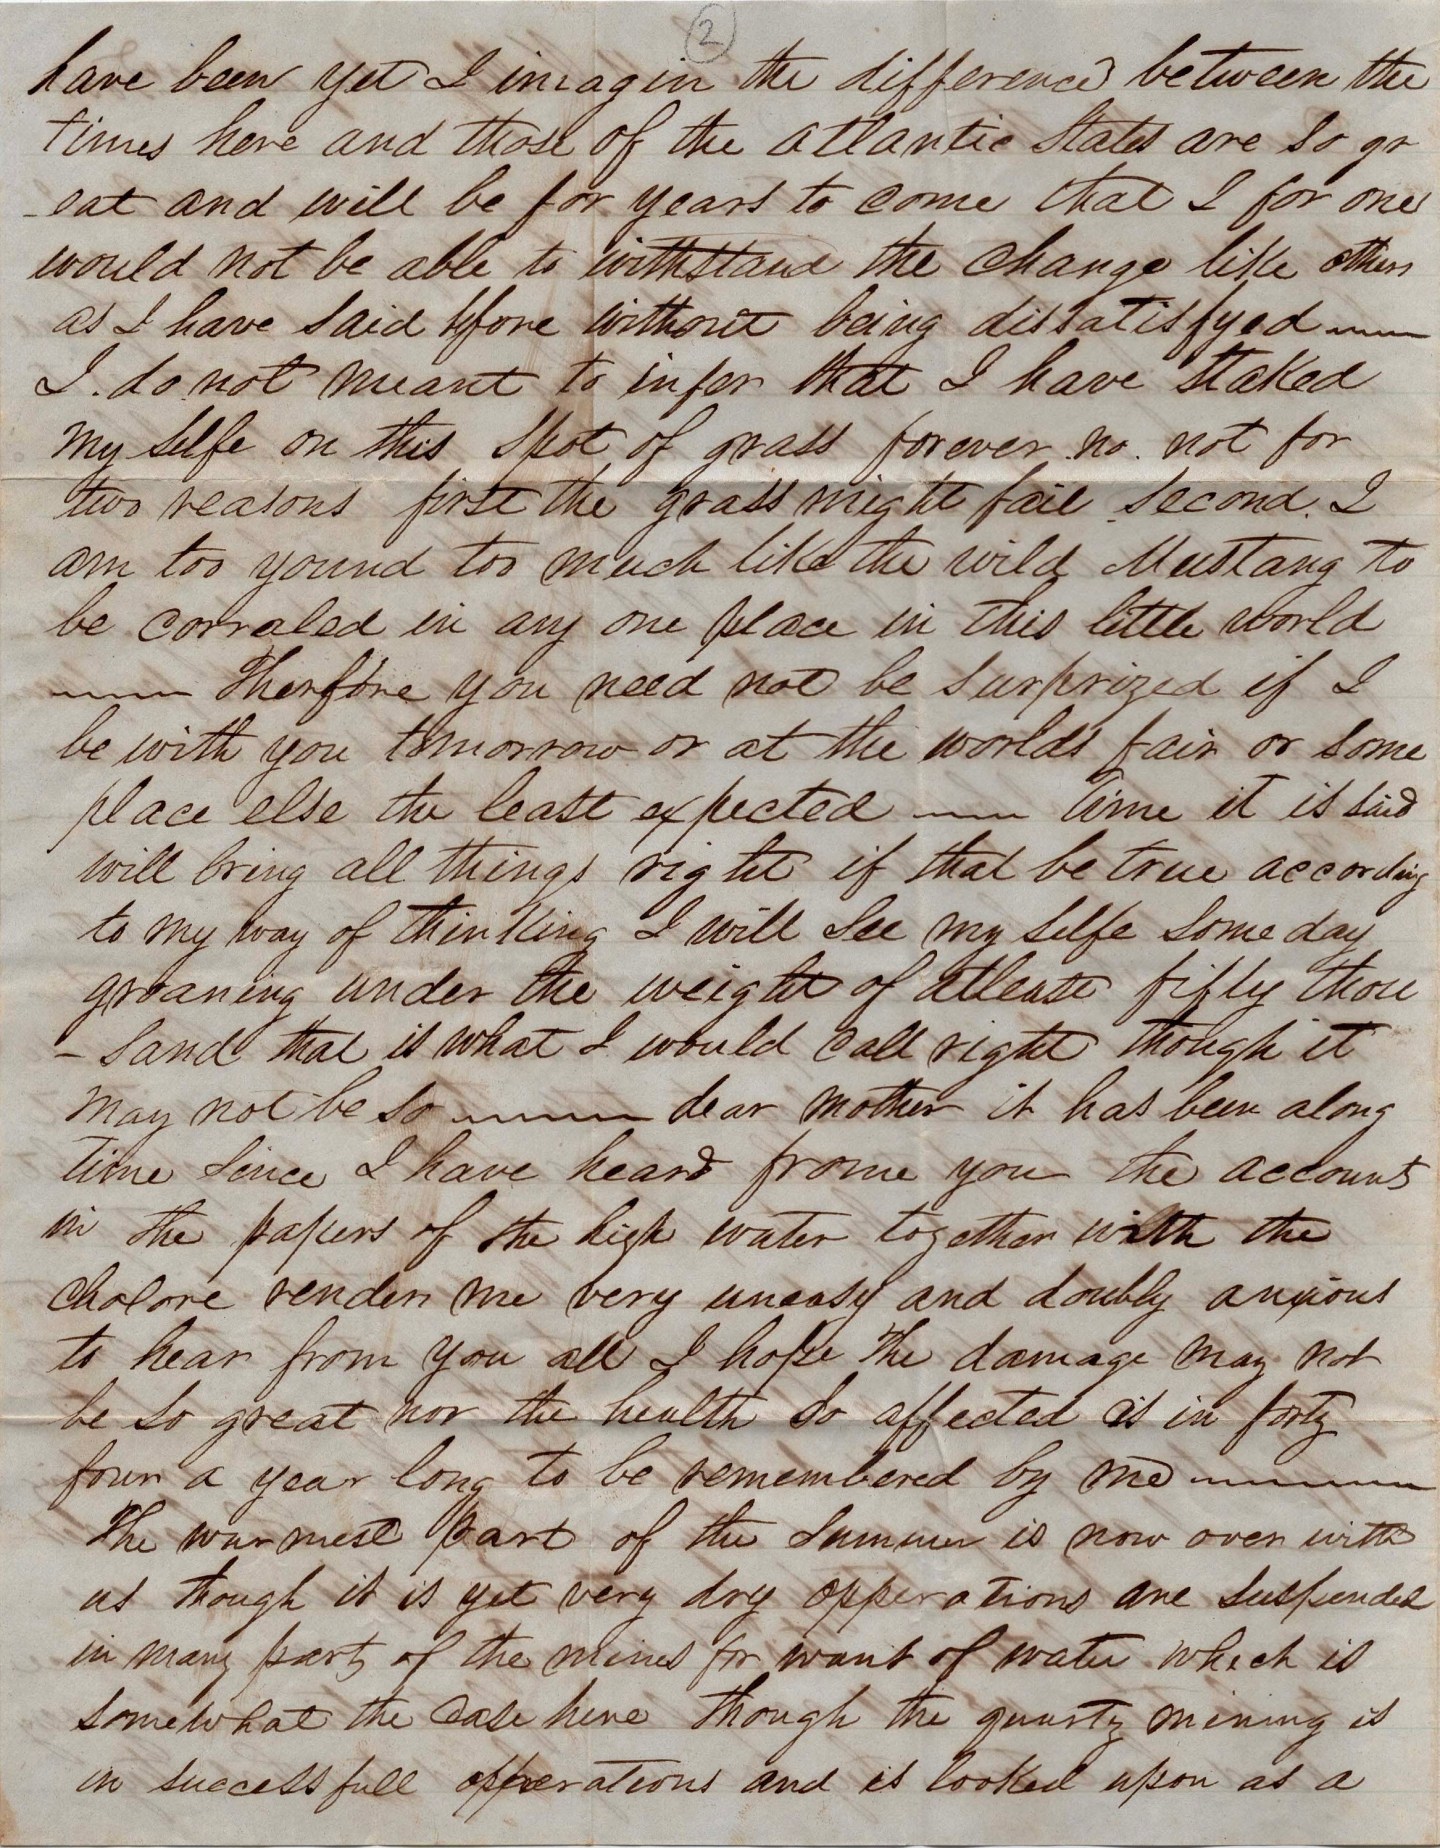 2
have been yet I imagin the difference between the
times here and those of the atlantic States are so gr
-eat and will be for years to come that I for one
would not be able to withstand the change like others
as I have said bfore without being dissatisfyed
I do not meant to infer that I have staked
my selfe on this spot of grass forever no. not for
two reasons first the grass might fail second. I
am too yound too much like the wild Mustang to
be corraled in any one place in this little world
Therfore you need not be surprized if I
be with you tomorrow or at the worlds fair or some
place else the least expected time it is said
will bring all things right if that be true according
to my way of thinking I will see my selfe some day
groaning under the weight of atlease fifty thou
-sand that is what I would call right though it
may not be so dear mother it has been along
time since I have heard frome you the accounts
in the papers of the high water together with the
cholore render me very uneasy and doubly anxious
to hear from you all I hope the damage may not
be so great nor the health so affected as in forty
four a year long to be remembered by me
The warmest part of the summer is now over with
us though it is yet very dry opperations are suspended
in many parts of the mines for want of water which is
somewhat the case here though the quartz mining is
in successfull opperations and is looked upon as a